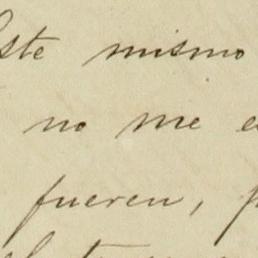 este mismo
no me e
fueren, p